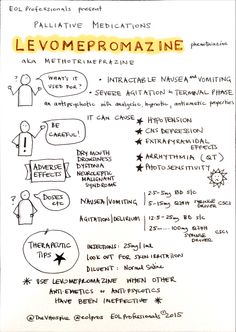 EOL Professionals present
PALLIATIVE MEDICATIONS
LEVOMEPROMAZINE phenothiazine
aka METHOTRIMEPRAZINE
WHAT'S IT USED FOR?
• INTRACTABLE NAUSEA and VOMITING
• SEVERE AGITATION in TERMINAL PHASE
an antipsychotic with analgesic, hypnotic, antiemetic properties
BE CAREFUL!
IT CAN CAUSE
HYPOTENSION
CNS DEPRESSION
EXTRAPYRAMIDAL EFFECTS
ARRHYTHMIA (QT)
PHOTOSENSITIVITY
ADVERSE EFFECTS
DRY MOUTH
DROWSINESS
DYSTONIA
NEUROLEPTIC
MALIGNANT
SYNDROME
DOSES etc
NAUSEA/VOMITING
2.5-5mg BD s/c
5-15mg Q24H SYRINGE DRIVER CSCI
AGITATION/DELIRIUM
12.5-25mg BD s/c
25-...100mg Q24H SYRINGE DRIVER CSCI
THERAPEUTIC TIPS
INJECTIONS: 25mg/1ml
LOOK OUT FOR SKIN IRRITATION
DILUENT: Normal Saline
USE LEVOMEPROMAZINE WHEN OTHER
ANTI-EMETICS or ANTIPSYCHOTICS
HAVE BEEN INEFFECTIVE
EOL Professionals © 2015